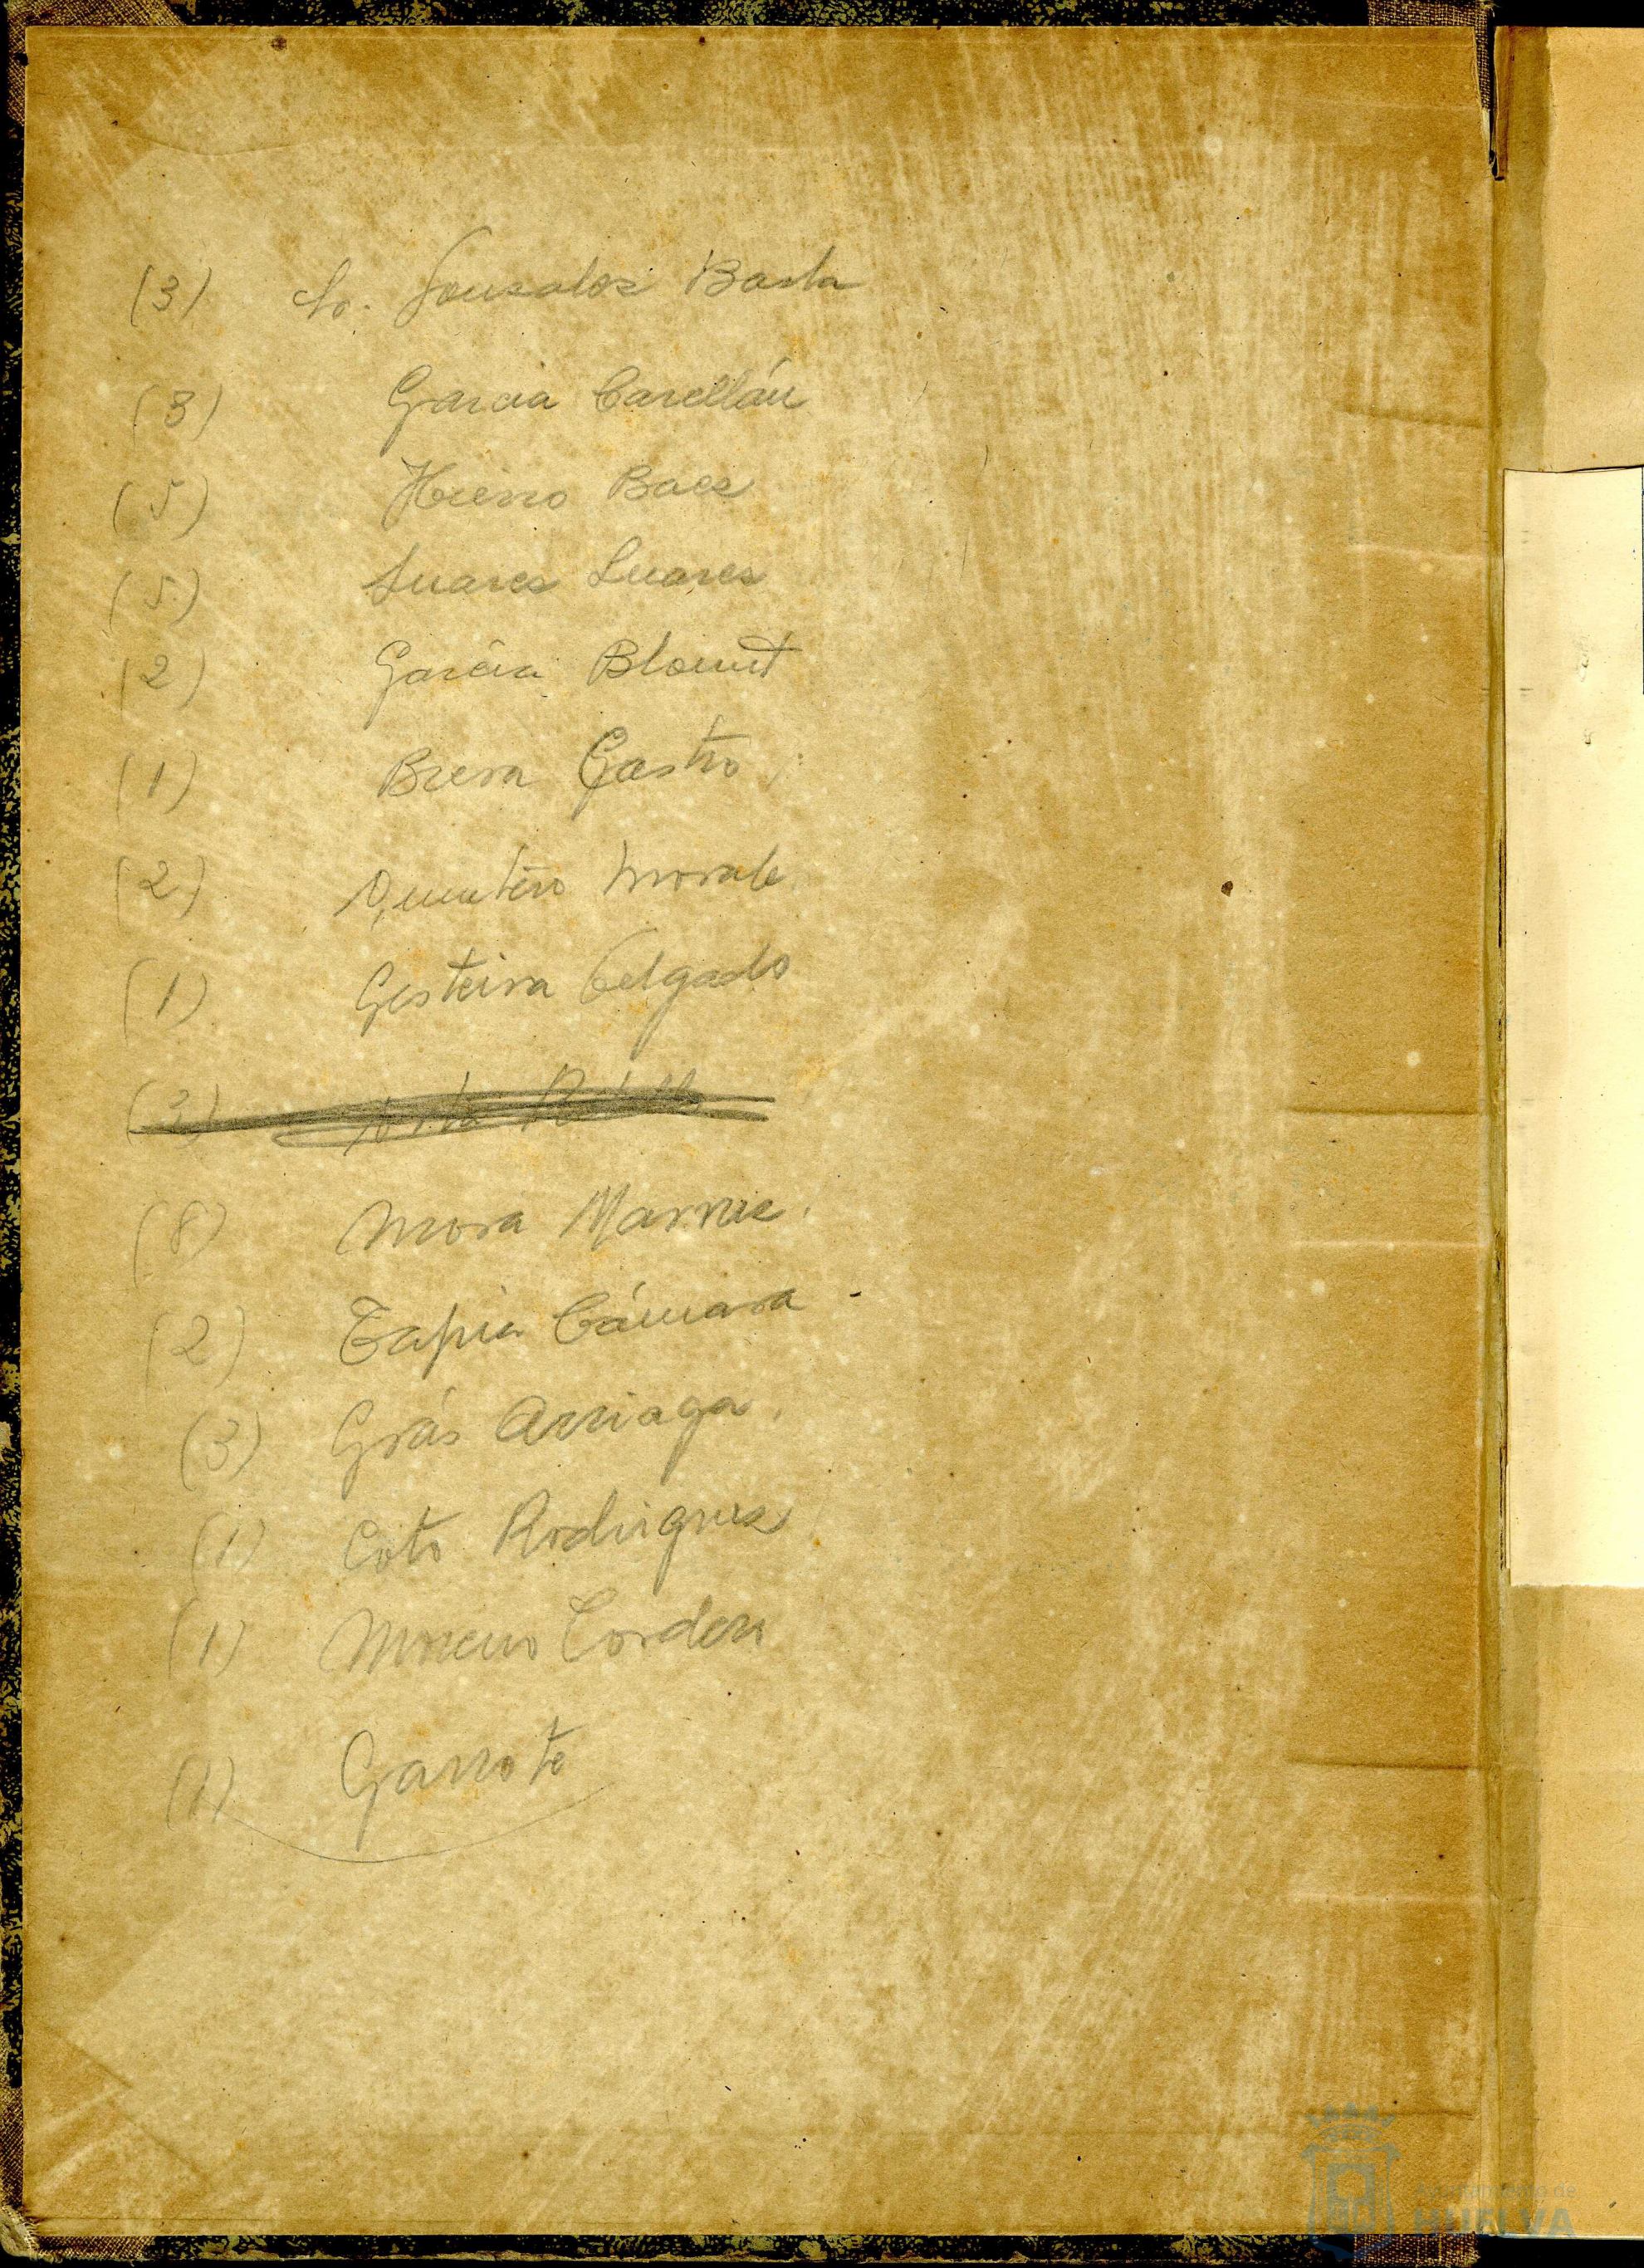 (3) Sr. Gonzalez Barba
(3) Garcia Carellán
(5) Hierro Baez
(5) Suarez Suarez
(2) García Blount
(1) Brera Castro
(2) Quintero Morale
(1) Gesteira Delgado
(3)
(8) Mora Narvaez.
(2) Tapia Cámara -
(3) Grás Arriaga.
(1) Coto Rodriguez
(1) Moreno Cordero
(1) Garrote
Ayuntamiento de
HUELVA